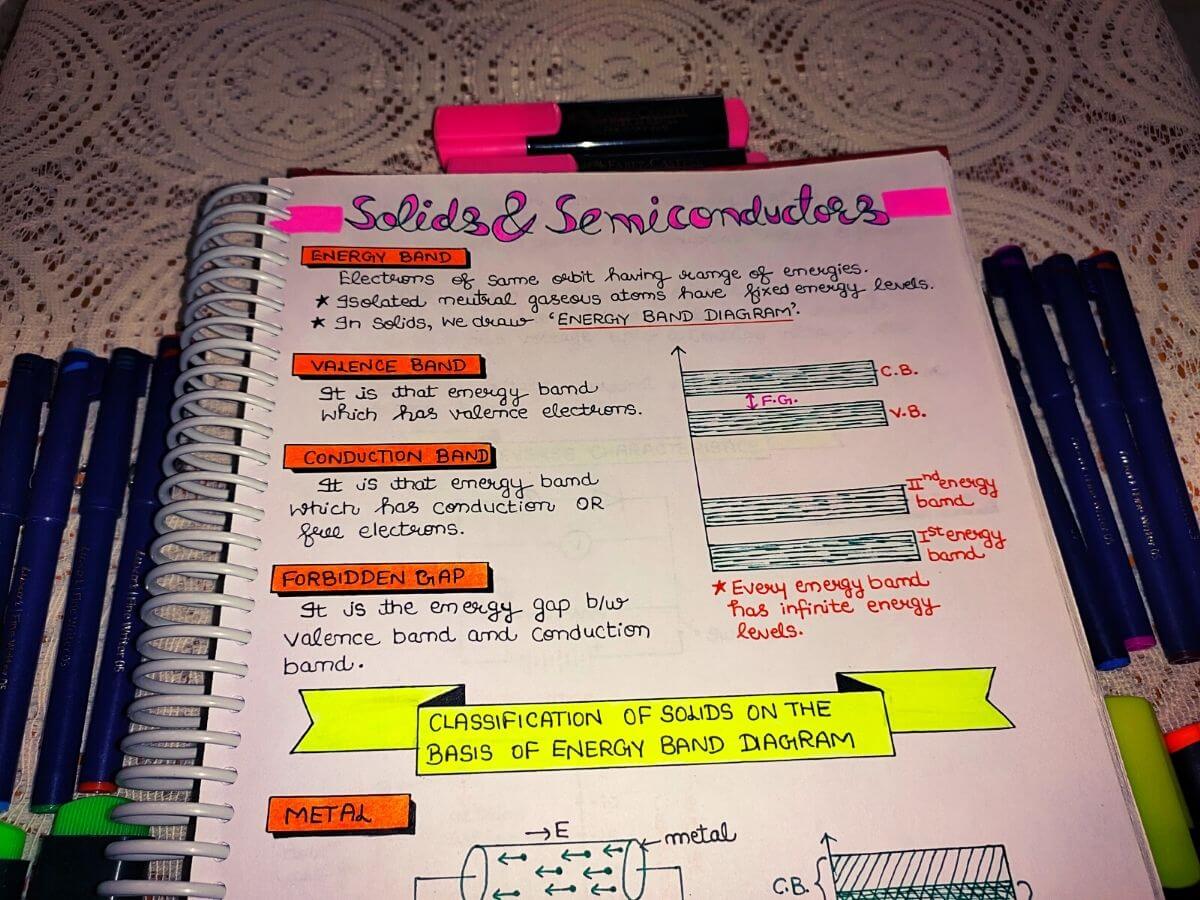 Solids & Semiconductors
ENERGY BAND
Electrons of same orbit having range of energies.
★ Isolated neutral gaseous atoms have fixed energy levels.
★ In Solids, we draw 'ENERGY BAND DIAGRAM'.
VALENCE BAND
It is that energy band
which has valence electrons.
CONDUCTION BAND
It is that energy band
which has conduction OR
free electrons.
FORBIDDEN GAP
It is the energy gap b/w
valence band and conduction
band.
C.B.
F.G.
V.B.
IInd energy
band
Ist energy
band
★ Every energy band
has infinite energy
levels.
CLASSIFICATION OF SOLIDS ON THE
BASIS OF ENERGY BAND DIAGRAM
METAL
→E
metal
C.B.